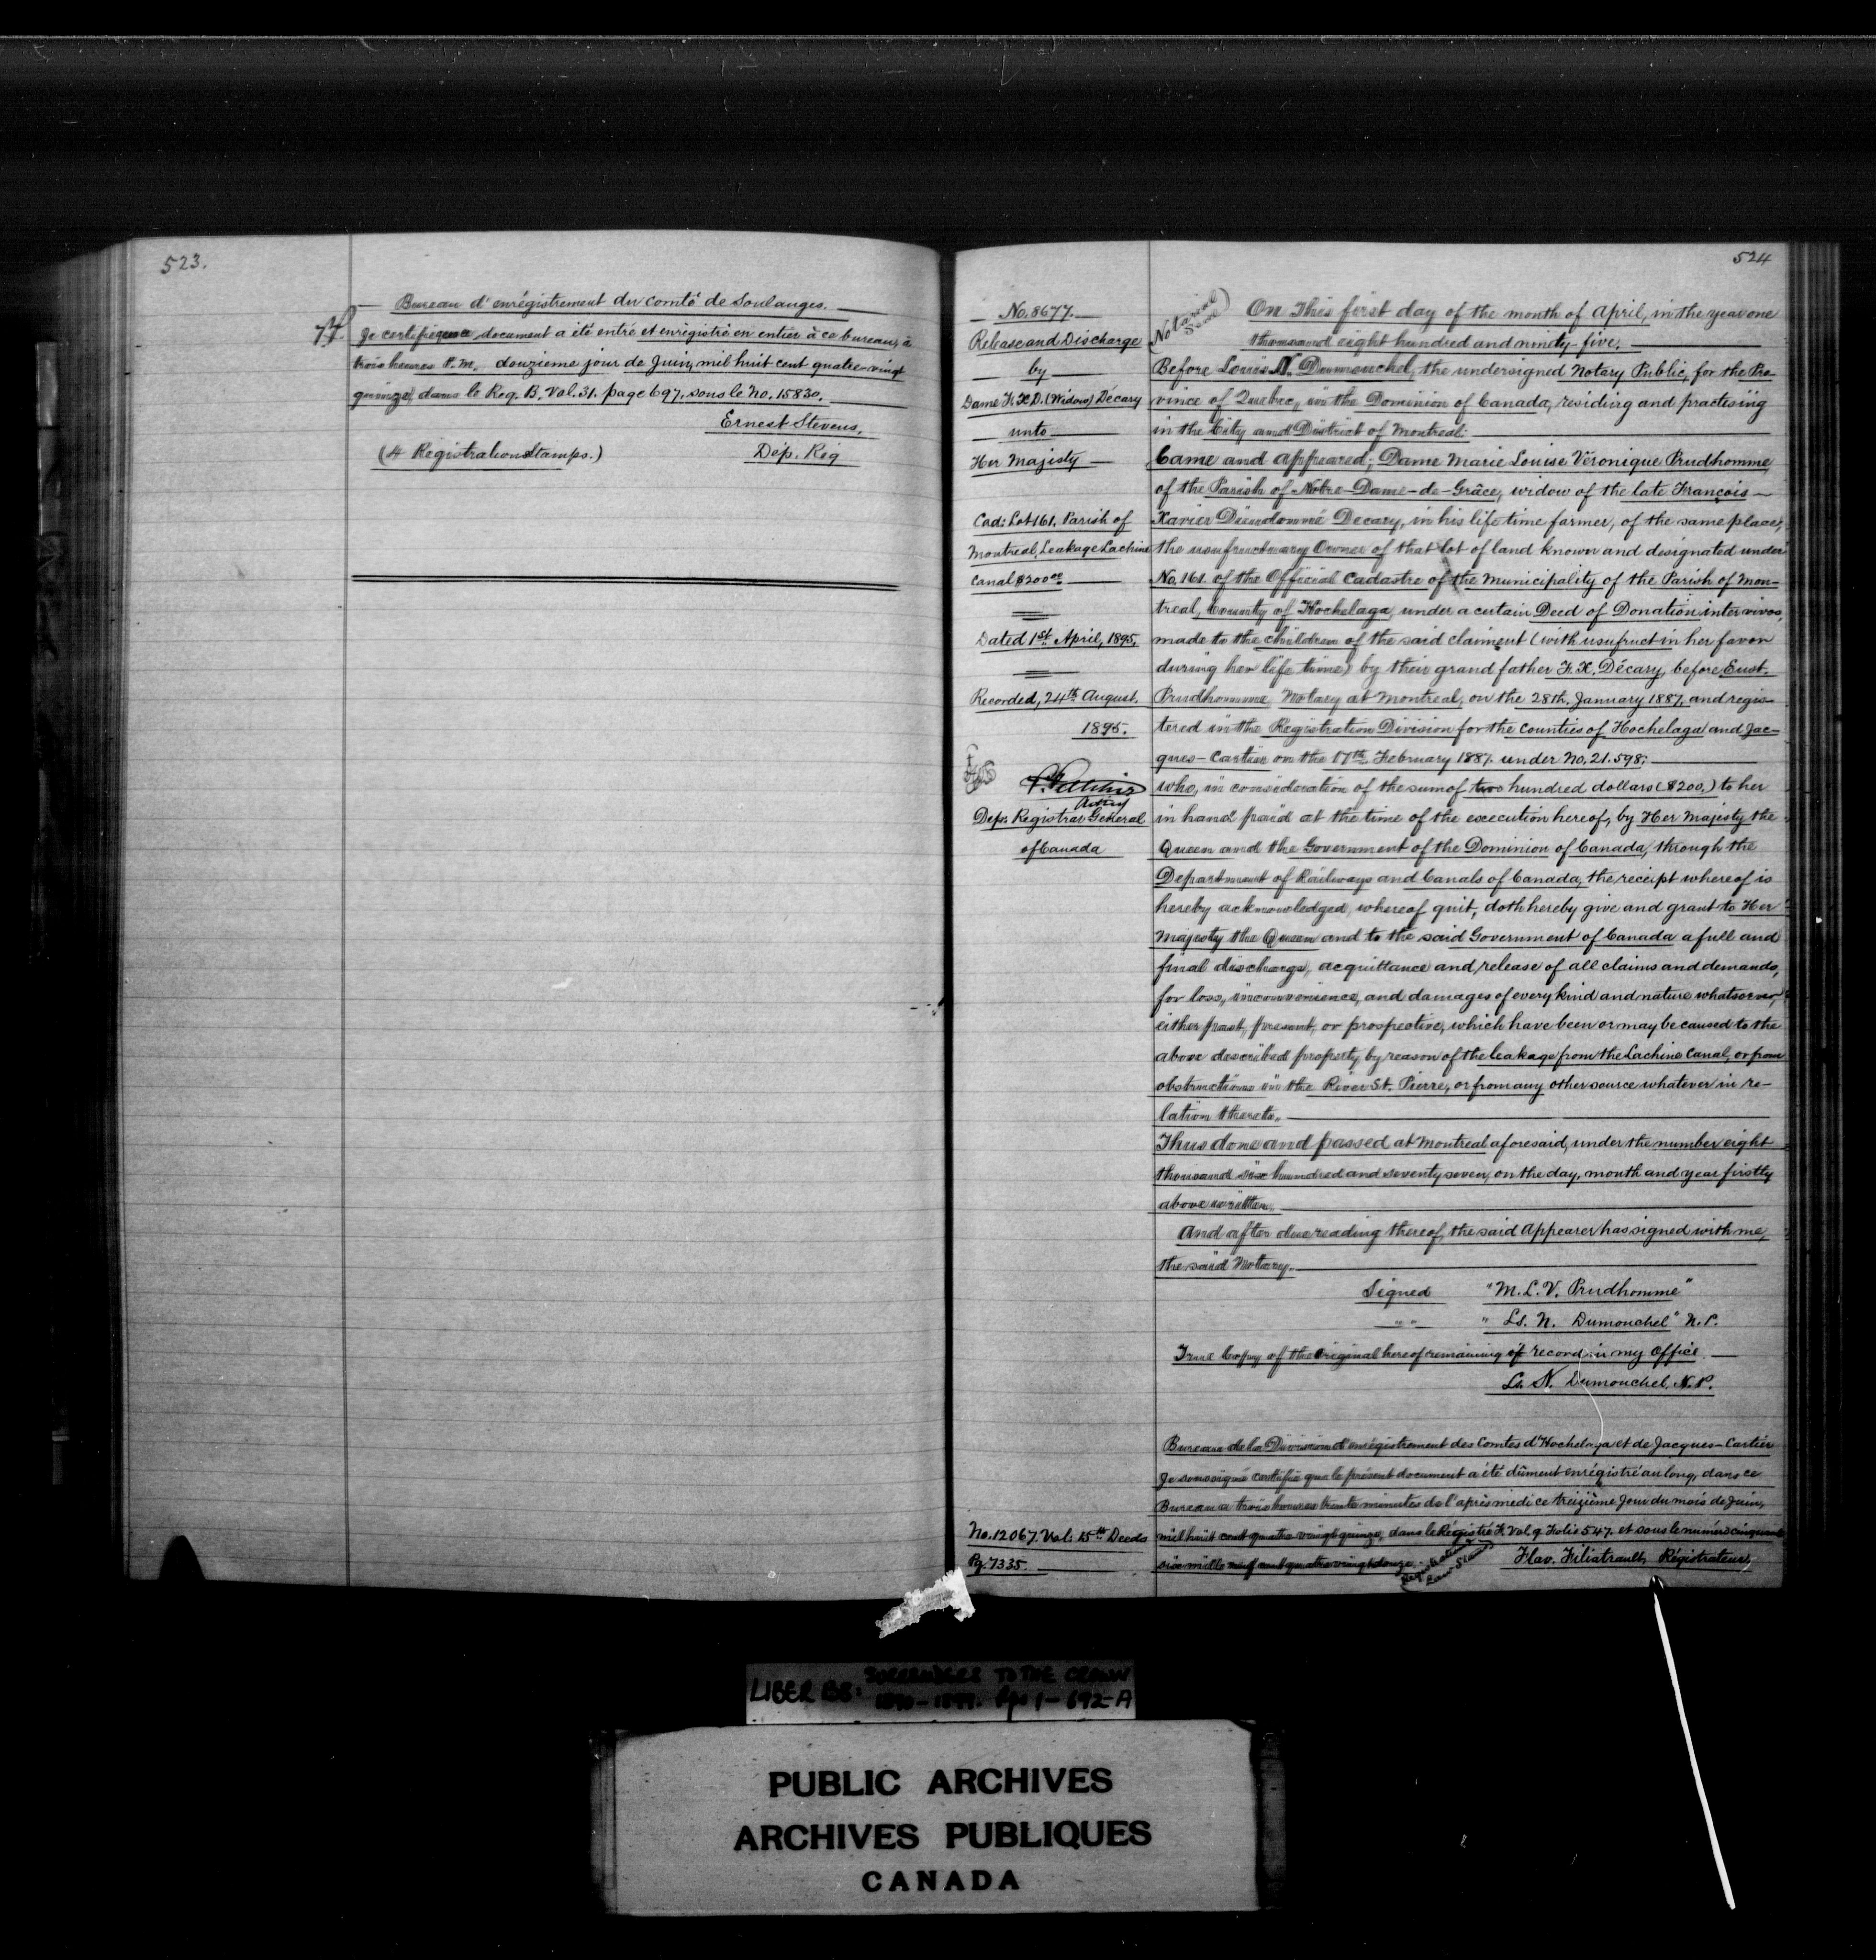 523.
Bureau d'enrégistrement du comté de Soulanges.
Je certifie que ce document a été entré et enrégistré en entier à ce bureau, à
trois heures P.M. douzieme jour de Juin, mil huit cent quatre-vingt
quinze, dans le Reg. B. Vol. 31. page 697, sous le No. 15830.
Ernest Stevens,
(4 Registration Stamps.) Dép. Reg
524
No. 8677.
Release and Discharge
by
Dame F. X. D. (Widow) Décary
unto
Her Majesty
Cad: Lot 161. Parish of
Montreal, Leakage Lachine
Canal $200.00
Dated 1st April, 1895.
Recorded, 24th August,
1895.
Acting
Dep. Registrar General
of Canada
No. 12067. Vol: 15th Deeds
Pg. 7335.
(Notarial Seal)
On This first day of the month of April, in the year one
thousand eight hundred and ninety-five.
Before Louis N. Dumouchel, the undersigned Notary Public, for the Pro-
vince of Quebec, in the Dominion of Canada, residing and practising
in the City and District of Montreal:
Came and Appeared; Dame Marie Louise Véronique Prudhomme
of the Parish of Notre-Dame-de-Grâce, widow of the late François
Xavier Dieudonné Decary, in his life time farmer, of the same place,
the usufructuary Owner of that lot of land known and designated under
No. 161. of the Official Cadastre of the Municipality of the Parish of Mon-
treal, County of Hochelaga, under a certain Deed of Donation inter vivos,
made to the children of the said claiment (with usufruct in her favor
during her life time) by their grand father F. X. Décary, before Eust.
Prudhomme, Notary at Montreal, on the 28th. January 1887, and regis-
tered in the Registration Division for the Counties of Hochelaga and Jac-
ques-Cartier on the 17th February 1887. under No. 21.598;
who, in consideration of the sum of two hundred dollars ($200,) to her
in hand paid at the time of the execution hereof, by Her Majesty the
Queen and the Government of the Dominion of Canada, through the
Department of Railways and Canals of Canada, the receipt whereof is
hereby acknowledged, whereof quit, doth hereby give and grant to Her
Majesty the Queen and to the said Government of Canada a full and
final discharge, acquittance and release of all claims and demands,
for loss, inconvenience, and damages of every kind and nature whatsoever,
either past, present, or prospective, which have been or may be caused to the
above described property by reason of the leakage from the Lachine Canal, or from
obstructions in the River St. Pierre, or from any other source whatever in re-
lation thereto.
Thus done and passed at Montreal aforesaid, under the number eight
thousand six hundred and seventy seven, on the day, month and year firstly
above written.
And after due reading thereof, the said Appearer has signed with me,
the said Notary.
Signed "M. L. V. Prudhomme"
" " "Ls. N. Dumouchel" N. P.
True Copy of the Original hereof remaining of record in my Office
Ls N. Dumouchel, N. P.
Bureau de la Division d'enrégistrement des Comtes d'Hochelaga et de Jacques-Cartier
Je soussigné certifie que le présent document a été dûment enrégistré au long, dans ce
Bureau a trois heures trente minutes de l'après midi ce treizième Jour du mois de Juin,
mil huit cent quatre vingt quinze, dans le Régistre F. Vol. 9 Folio 547. et sous le numéro cinquante
six mille neuf cent quatre vingt douze. (Registration Law Stamps) Flav. Filiatrault, Régistrateur,
LIBER BB: SURRENDERS TO THE CROWN
1890-1899. Pps 1-692-A
PUBLIC ARCHIVES
ARCHIVES PUBLIQUES
CANADA